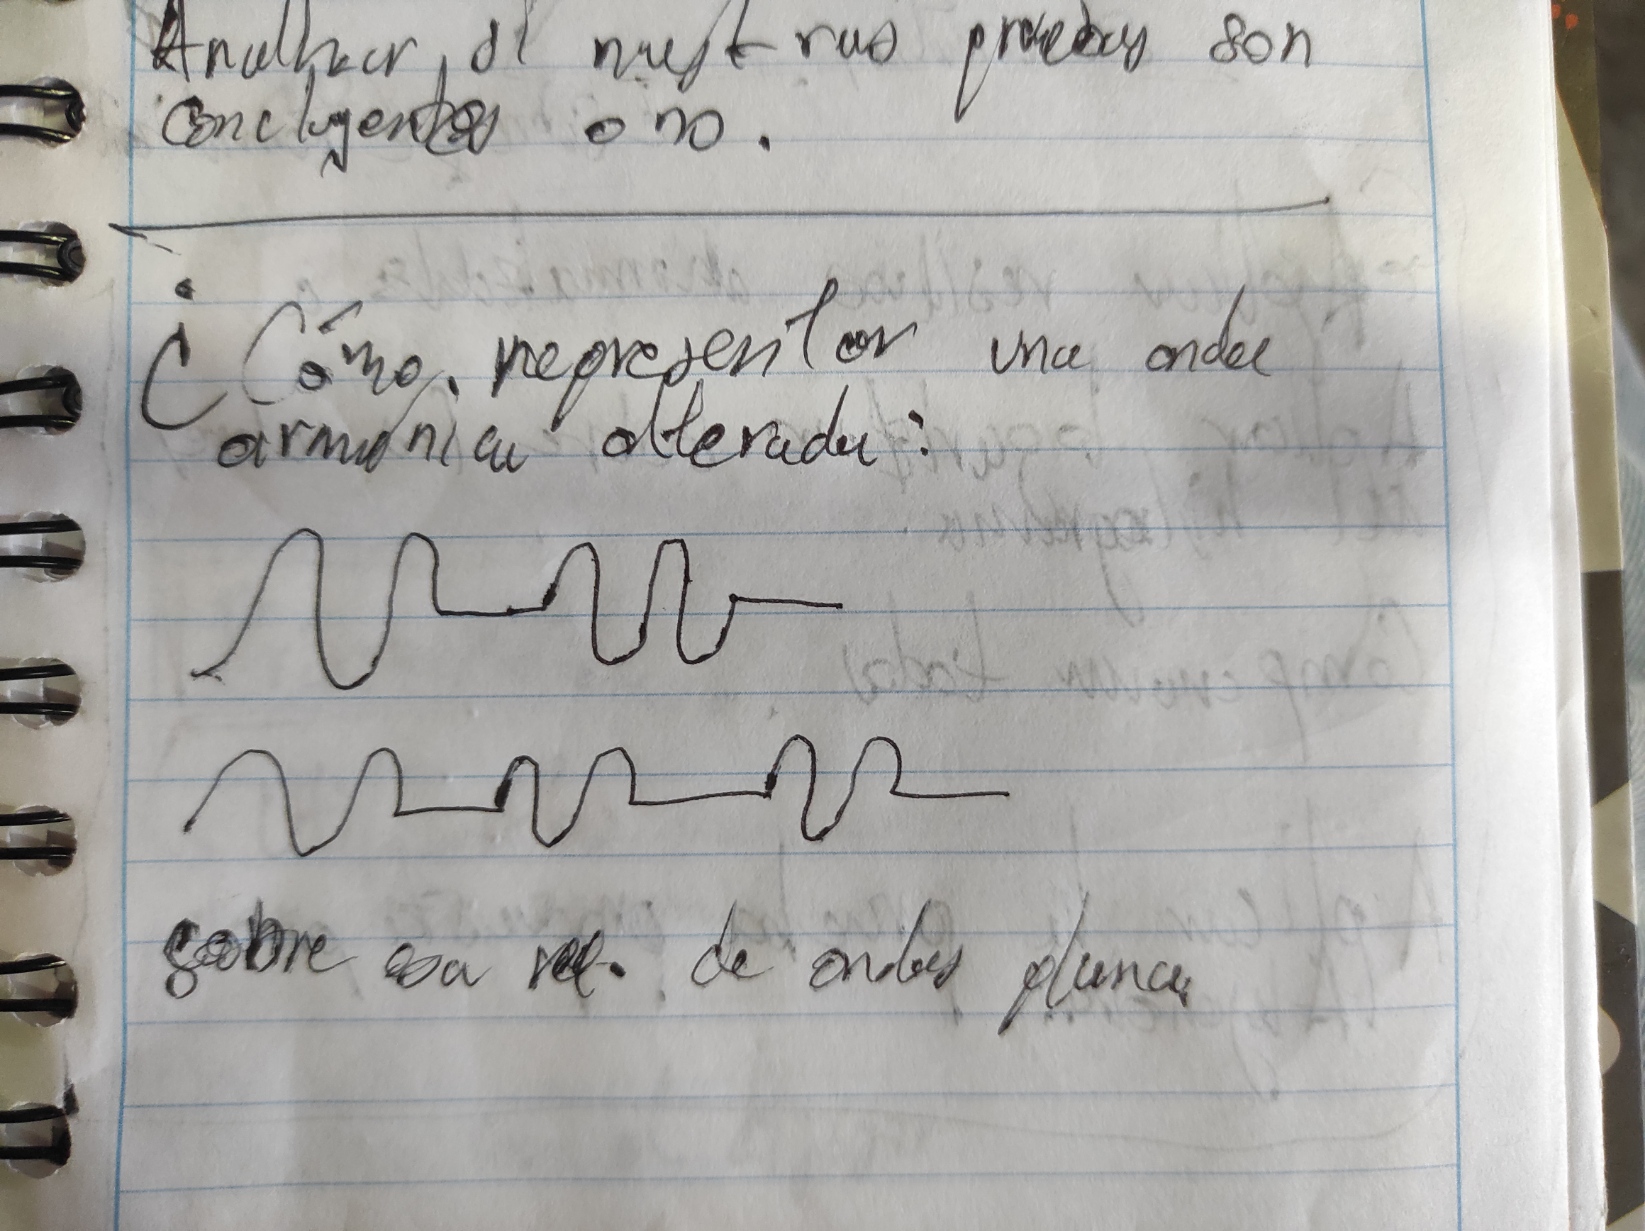 Analizar si nuestras pruebas son
concluyentes o no.
¿Cómo representar una onda
armónica alterada:
sobre esa de ondas plana